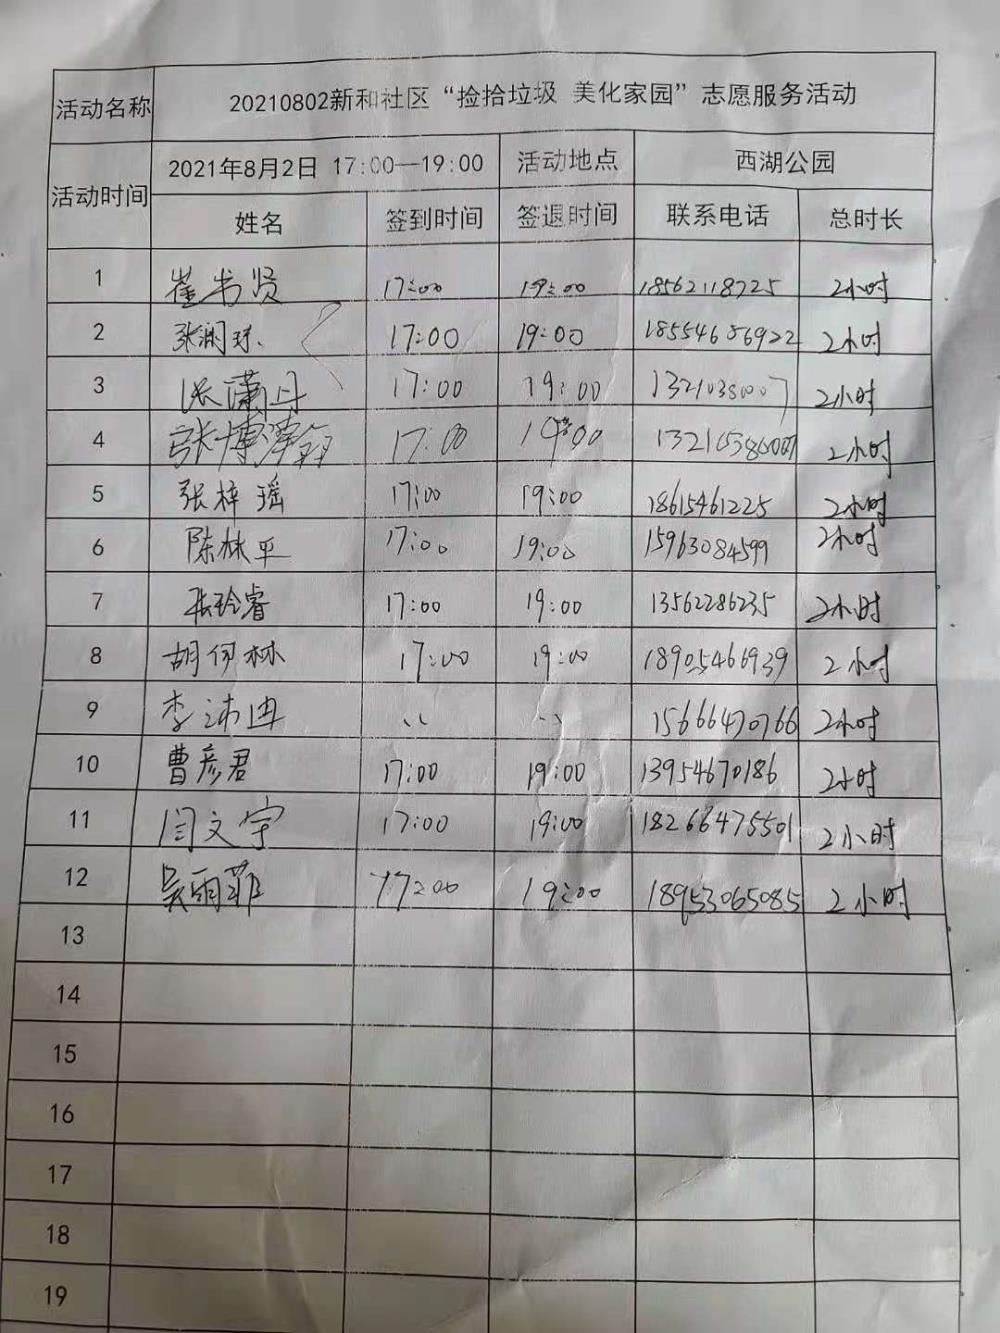 活动名称 20210802新和社区“捡拾垃圾 美化家园”志愿服务活动
活动时间 2021年8月2日 17:00—19:00 活动地点 西湖公园
姓名 签到时间 签退时间 联系电话 总时长
1 崔书贤 17:00 19:00 18562118725 2小时
2 张润琼 17:00 19:00 18554686922 2小时
3 张潇丹 17:00 19:00 13210380007 2小时
4 张博泽 17:00 19:00 2小时
5 张梓瑶 17:00 19:00 18615461225 2小时
6 陈林平 17:00 19:00 15963084599 2小时
7 张玲睿 17:00 19:00 13562286235 2小时
8 胡伊林 17:00 19:00 18905466939 2小时
9 李沛冉 、、 、、 15666470766 2小时
10 曹彦君 17:00 19:00 13954670186 2小时
11 闫文宇 17:00 19:00 18266475501 2小时
12 吴雨菲 17:00 19:00 18953065085 2小时
13
14
15
16
17
18
19